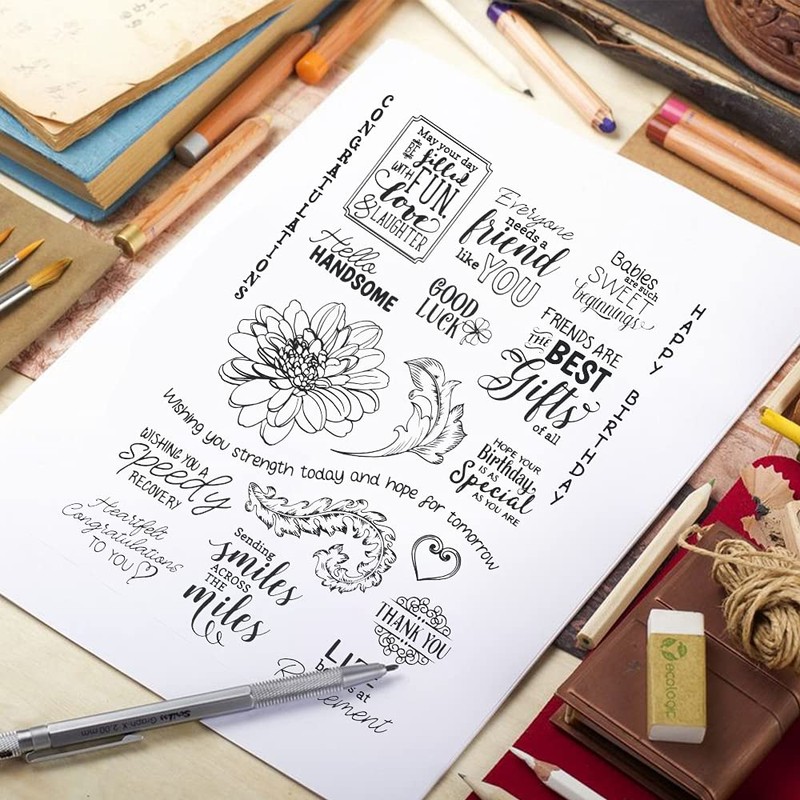 CONGRATULATIONS
May your day
BE filled
WITH FUN,
love
& LAUGHTER
Everyone
needs a
friend
like YOU
Babies
are such
SWEET
beginnings
Hello
HANDSOME
GOOD
LUCK
FRIENDS ARE
THE BEST
Gifts
of all
HAPPY BIRTHDAY
Wishing you strength today and hope for tomorrow
HOPE YOUR
Birthday
IS AS
Special
AS YOU ARE
WISHING YOU A
speedy
RECOVERY
Heartfelt
Congratulations
TO YOU
Sending
smiles
ACROSS
THE
miles
THANK YOU
at
Graph-X 2.00 mm